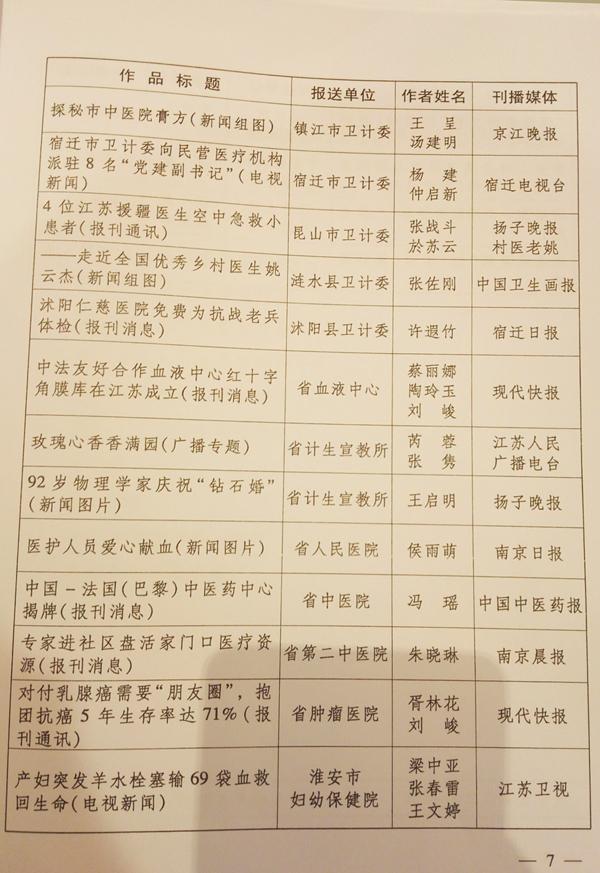 作品标题 报送单位 作者姓名 刊播媒体
探秘市中医院膏方(新闻组图) 镇江市卫计委 王呈 京江晚报
汤建明
宿迁市卫计委向民营医疗机构
派驻8名“党建副书记”(电视
新闻) 宿迁市卫计委 杨建 宿迁电视台
仲启新
4位江苏援疆医生空中急救小
患者(报刊通讯) 昆山市卫计委 张战斗 扬子晚报
於苏云 村医老姚
——走近全国优秀乡村医生姚
云杰(新闻组图) 涟水县卫计委 张佐刚 中国卫生画报
沭阳仁慈医院免费为抗战老兵
体检(报刊消息) 沭阳县卫计委 许遐竹 宿迁日报
中法友好合作血液中心红十字
角膜库在江苏成立(报刊消息) 省血液中心 蔡丽娜 现代快报
陶玲玉
刘峻
玫瑰心香香满园(广播专题) 省计生宣教所 芮蓉 江苏人民
张隽 广播电台
92岁物理学家庆祝“钻石婚”
(新闻图片) 省计生宣教所 王启明 扬子晚报
医护人员爱心献血(新闻图片) 省人民医院 侯雨萌 南京日报
中国－法国(巴黎)中医药中心
揭牌(报刊消息) 省中医院 冯瑶 中国中医药报
专家进社区盘活家门口医疗资
源(报刊消息) 省第二中医院 朱晓琳 南京晨报
对付乳腺癌需要“朋友圈”，抱
团抗癌5年生存率达71%(报
刊通讯) 省肿瘤医院 胥林花 现代快报
刘峻
产妇突发羊水栓塞输69袋血救
回生命(电视新闻) 淮安市 梁中亚 江苏卫视
妇幼保健院 张春雷
王文婷
— 7 —